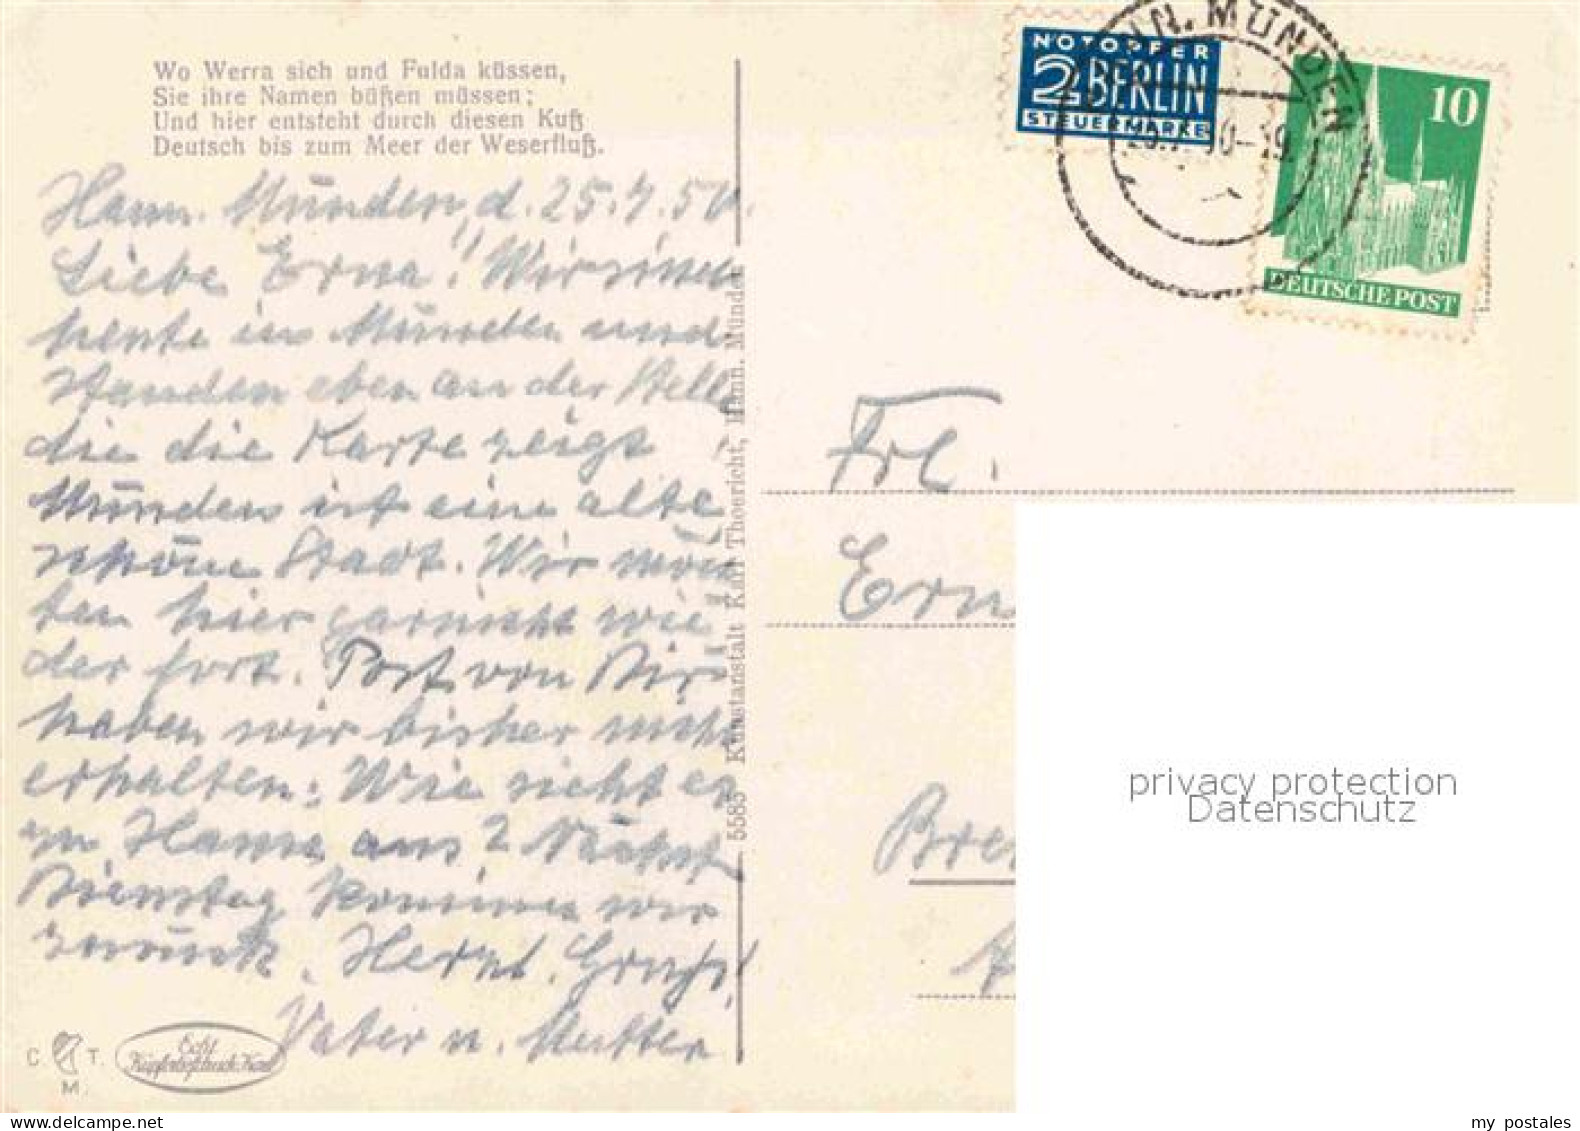 Wo Werra sich und Fulda küssen,
Sie ihre Namen büßen müssen;
Und hier entsteht durch diesen Kuß
Deutsch bis zum Meer der Weserfluß.
Hann. Münden, d. 25.7.50.
Liebe Erna! Wir sind
heute in Münden und
standen eben an der Stelle
die die Karte zeigt!
Münden ist eine alte
schöne Stadt. Wir möch
ten hier garnicht wie
der fort. Post von Dir
haben wir bisher nicht
erhalten. Wie sieht es
zu Hause aus? Nächst
Dienstag kommen wir
zurück. Herzl. Gruß!
Vater u. Mutter
C. T.
M.
Echt
Kupfertiefdruck-Karte
5585 Kunstanstalt Karl Thoericht, Hann. Münden
NOTOPFER
2 BERLIN
STEUERMARKE
HANN. MÜNDEN
10
DEUTSCHE POST
Frl.
Ern
Bre
privacy protection
Datenschutz
my postales